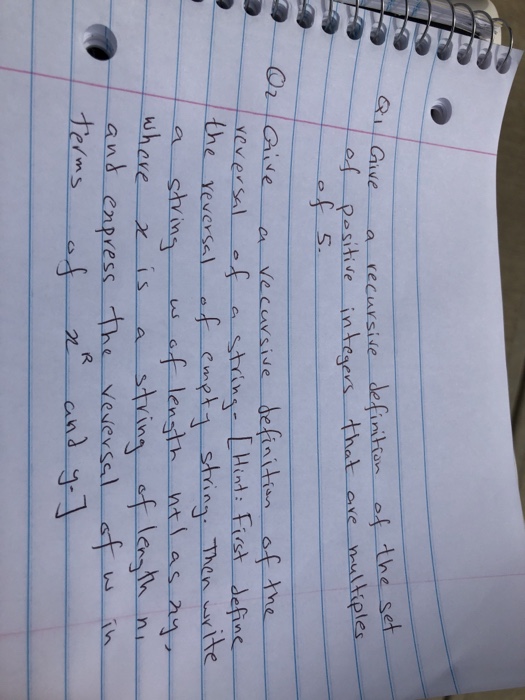 Q1 Give a recursive definition of the set
of positive integers that are multiples
of 5.
Q2 Give a recursive definition of the
reversal of a string. [Hint: First define
the reversal of empty string. Then write
a string w of length n+1 as xy,
where x is a string of length n,
and express the reversal of w in
terms of x^R and y.]